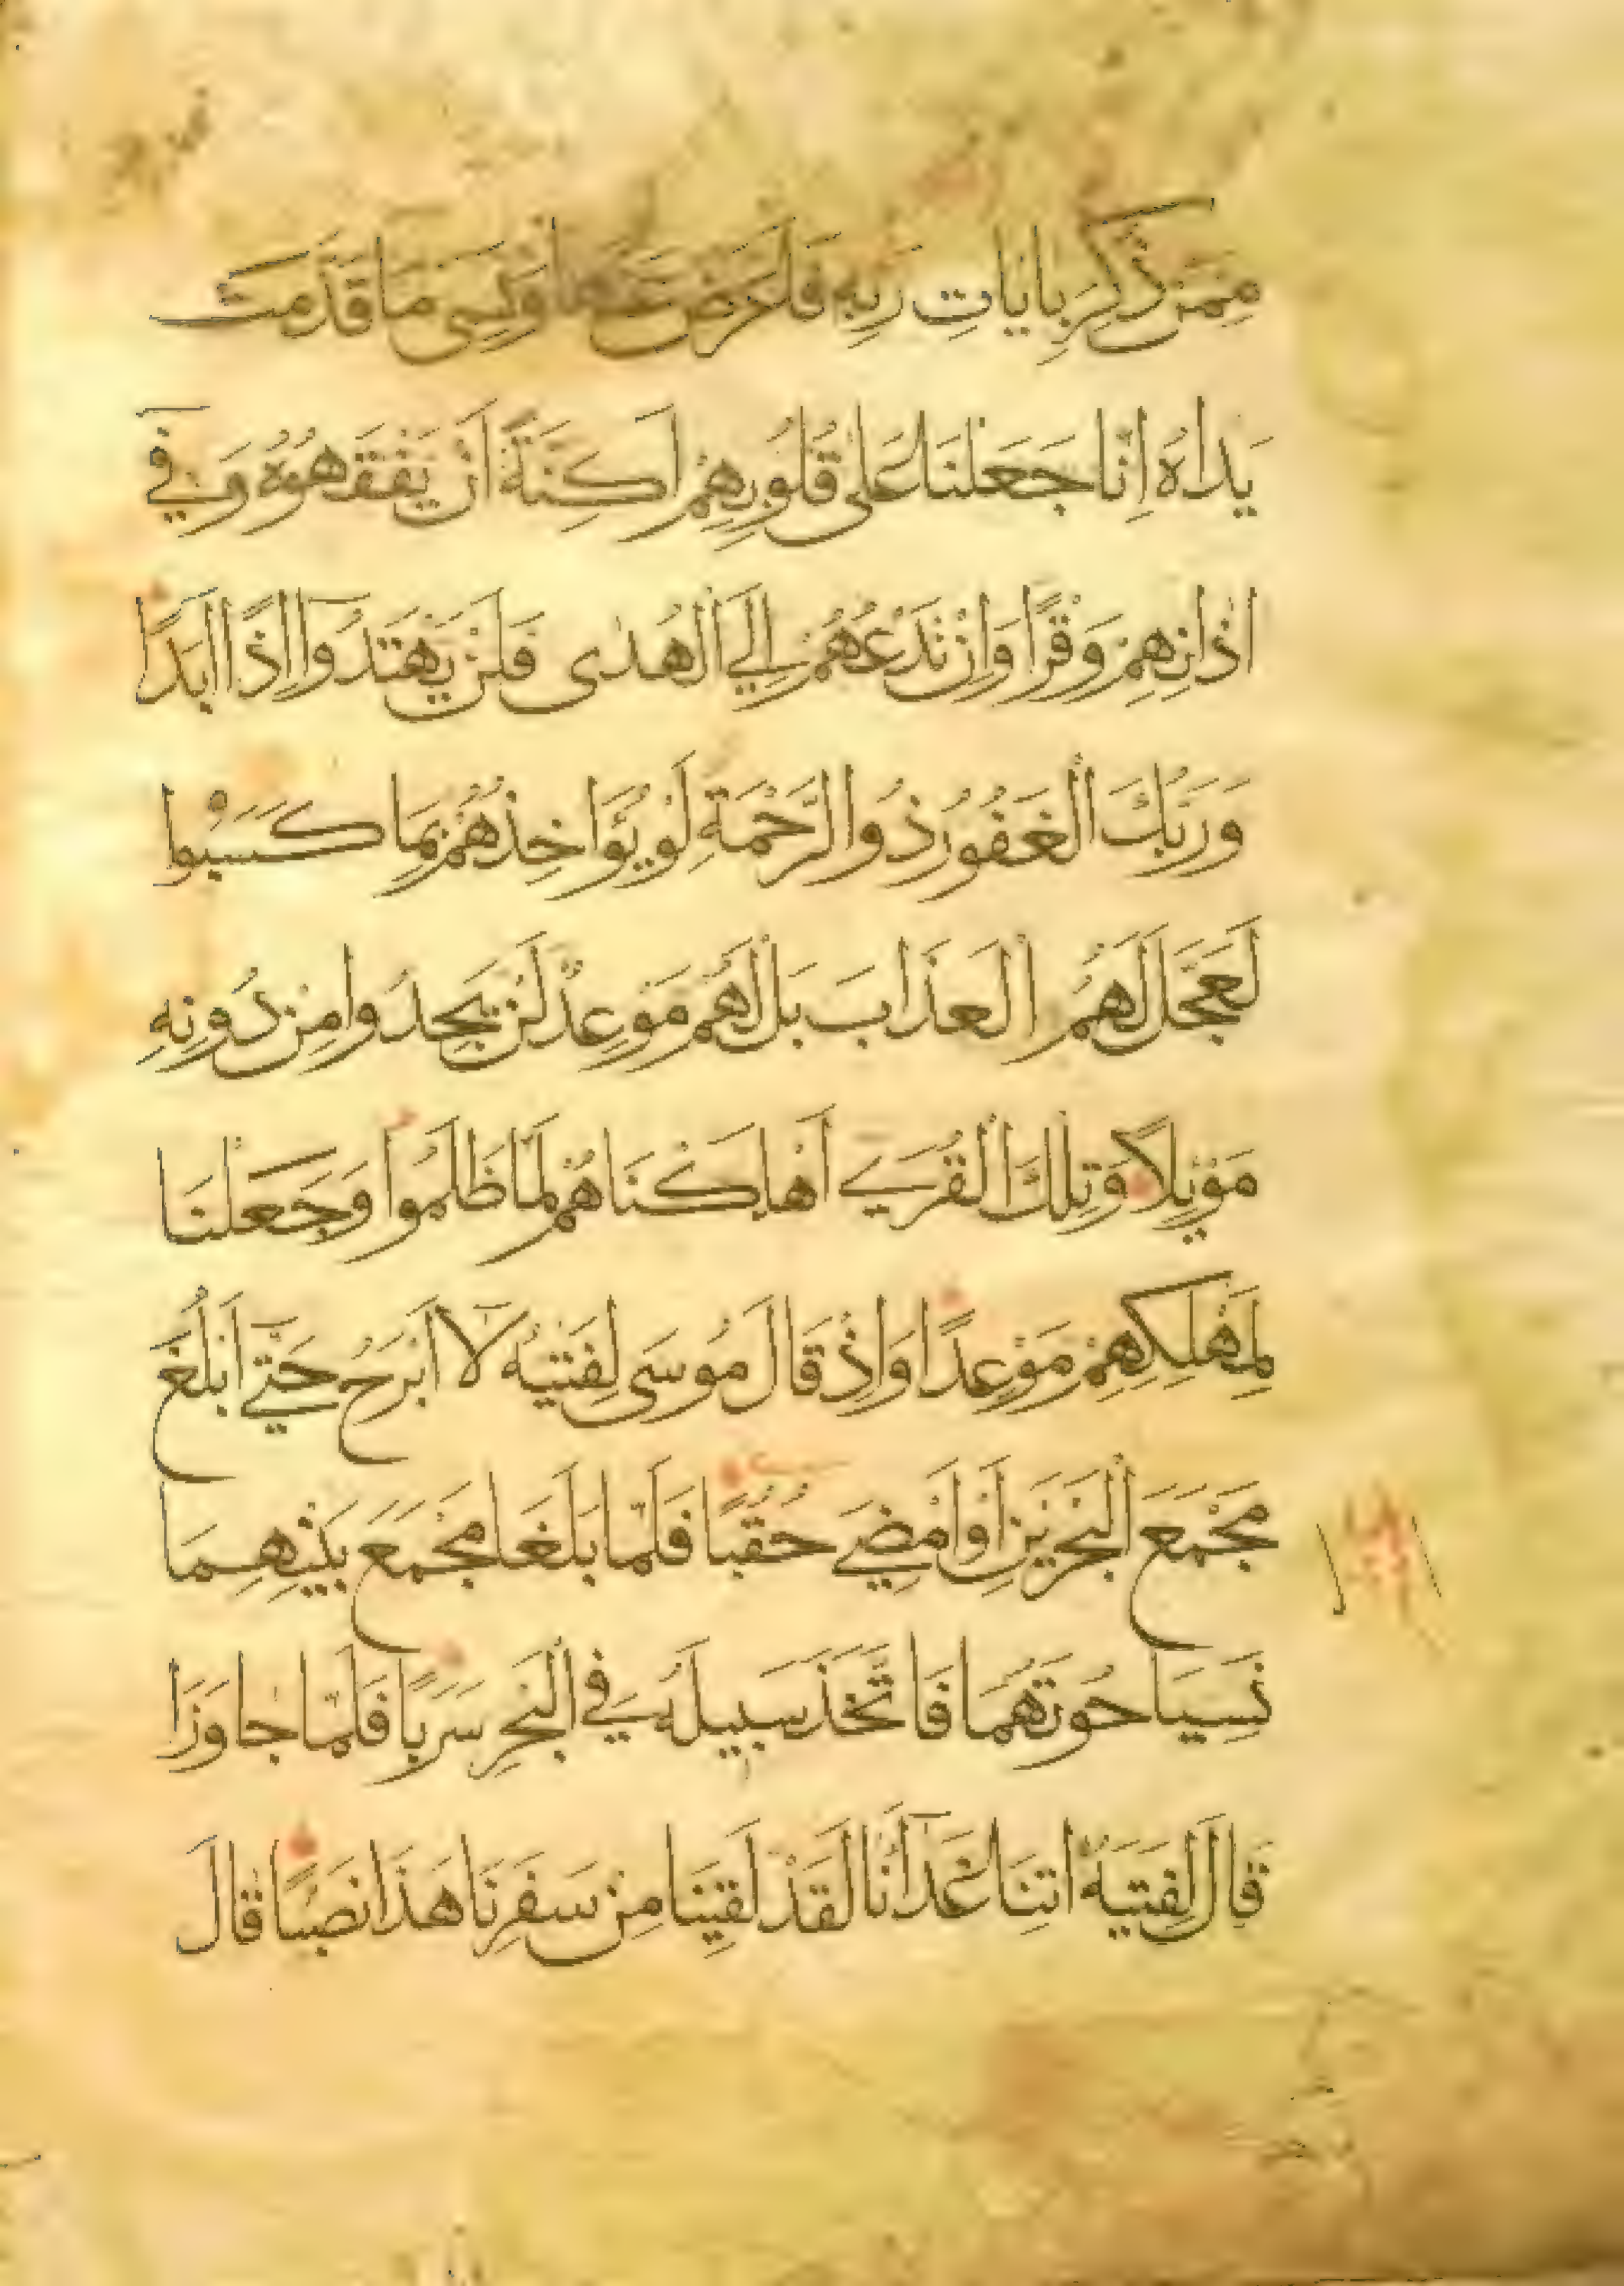 مِمَّنْ ذُكِّرَ بِايَاتِ رَبِّهِ فَاَعْرَضَ عَنْهَا وَنَسِيَ مَا قَدَّمَتْ
يَدَاهُ اِنَّا جَعَلْنَا عَلٰى قُلُوبِهِمْ اَكِنَّةً اَنْ يَفْقَهُوهُ وَفِي
اٰذَانِهِمْ وَقْرًا وَاِنْ تَدْعُهُمْ اِلَي الْهُدٰى فَلَنْ يَهْتَدُوا اِذًا اَبَدًا
وَرَبُّكَ الْغَفُورُ ذُو الرَّحْمَةِ لَوْ يُؤَاخِذُهُمْ بِمَا كَسَبُوا
لَعَجَّلَ لَهُمُ الْعَذَابَ بَلْ لَهُمْ مَوْعِدٌ لَنْ يَجِدُوا مِنْ دُونِهِ
مَوْئِلًا وَتِلْكَ الْقُرَي اَهْلَكْنَاهُمْ لَمَّا ظَلَمُوا وَجَعَلْنَا
لِمَهْلِكِهِمْ مَوْعِدًا وَاِذْ قَالَ مُوسَى لِفَتٰيهُ لَا اَبْرَحُ حَتَّي اَبْلُغَ
مَجْمَعَ الْبَحْرَيْنِ اَوْ اَمْضِيَ حُقُبًا فَلَمَّا بَلَغَا مَجْمَعَ بَيْنِهِمَا
نَسِيَا حُوتَهُمَا فَاتَّخَذَ سَبِيلَهُ فِي الْبَحْرِ سَرَبًا فَلَمَّا جَاوَزَا
قَالَ لِفَتٰيهُ اٰتِنَا غَدَآءَنَا لَقَدْ لَقِينَا مِنْ سَفَرِنَا هَذَا نَصَبًا قَالَ